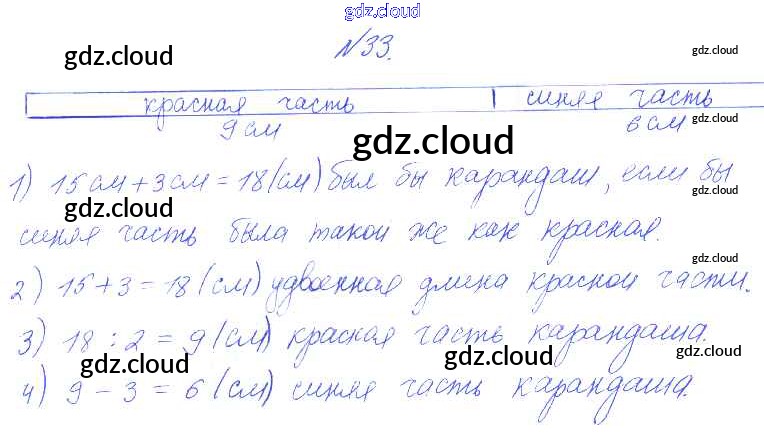 gdz.cloud
№33.
gdz.cloud gdz.cloud
красная часть синяя часть
9 см 6 см gdz.cloud
gdz.cloud
1) 15 см + 3 см = 18 (см) был бы карандаш, если бы
gdz.cloud gdz.cloud
синяя часть была такой же как красная.
gdz.cloud
2) 15 + 3 = 18 (см) удвоенная длина красной части.
3) 18 : 2 = 9 (см) красная часть карандаша.
gdz.cloud gdz.cloud gdz.cloud
4) 9 - 3 = 6 (см) синяя часть карандаша.